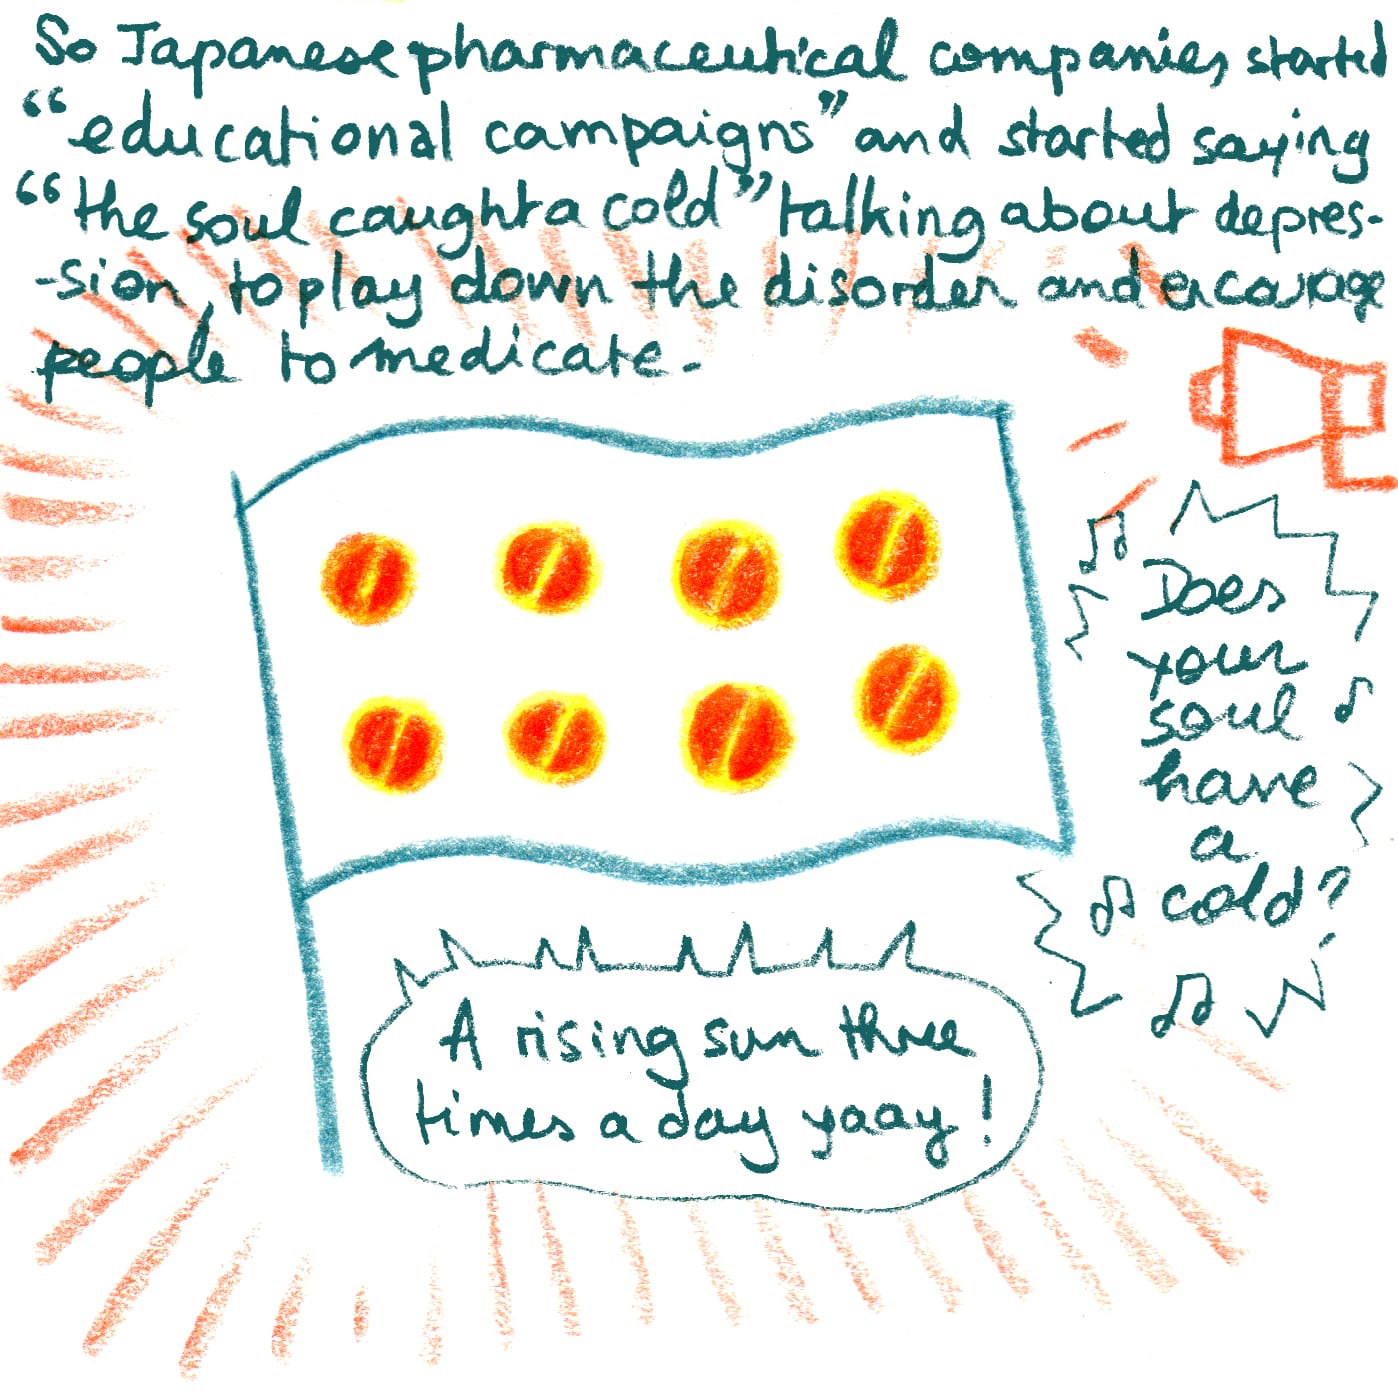 So Japanese pharmaceutical companies started
“educational campaigns” and started saying
“the soul caught a cold” talking about depres-
-sion, to play down the disorder and encourage
people to medicate.
Does
your
soul
have
a
cold?
A rising sun three
times a day yaay!